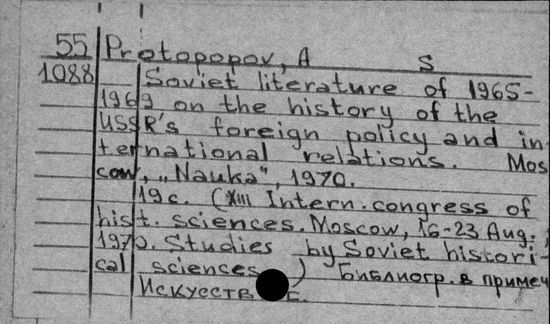 55 Protopopov, A S
1088 Soviet literature of 1965-
1969 on the history of the
USSR's foreign policy and in-
ternational relations. Mos
cow, „Nauka", 1970.
19c. (XIII Intern. congress of
hist. sciences. Moscow, 16-23 Aug.,
1970. Studies by Soviet histori-
cal sciences ) Библиогр. в примеч
Искусств Е.